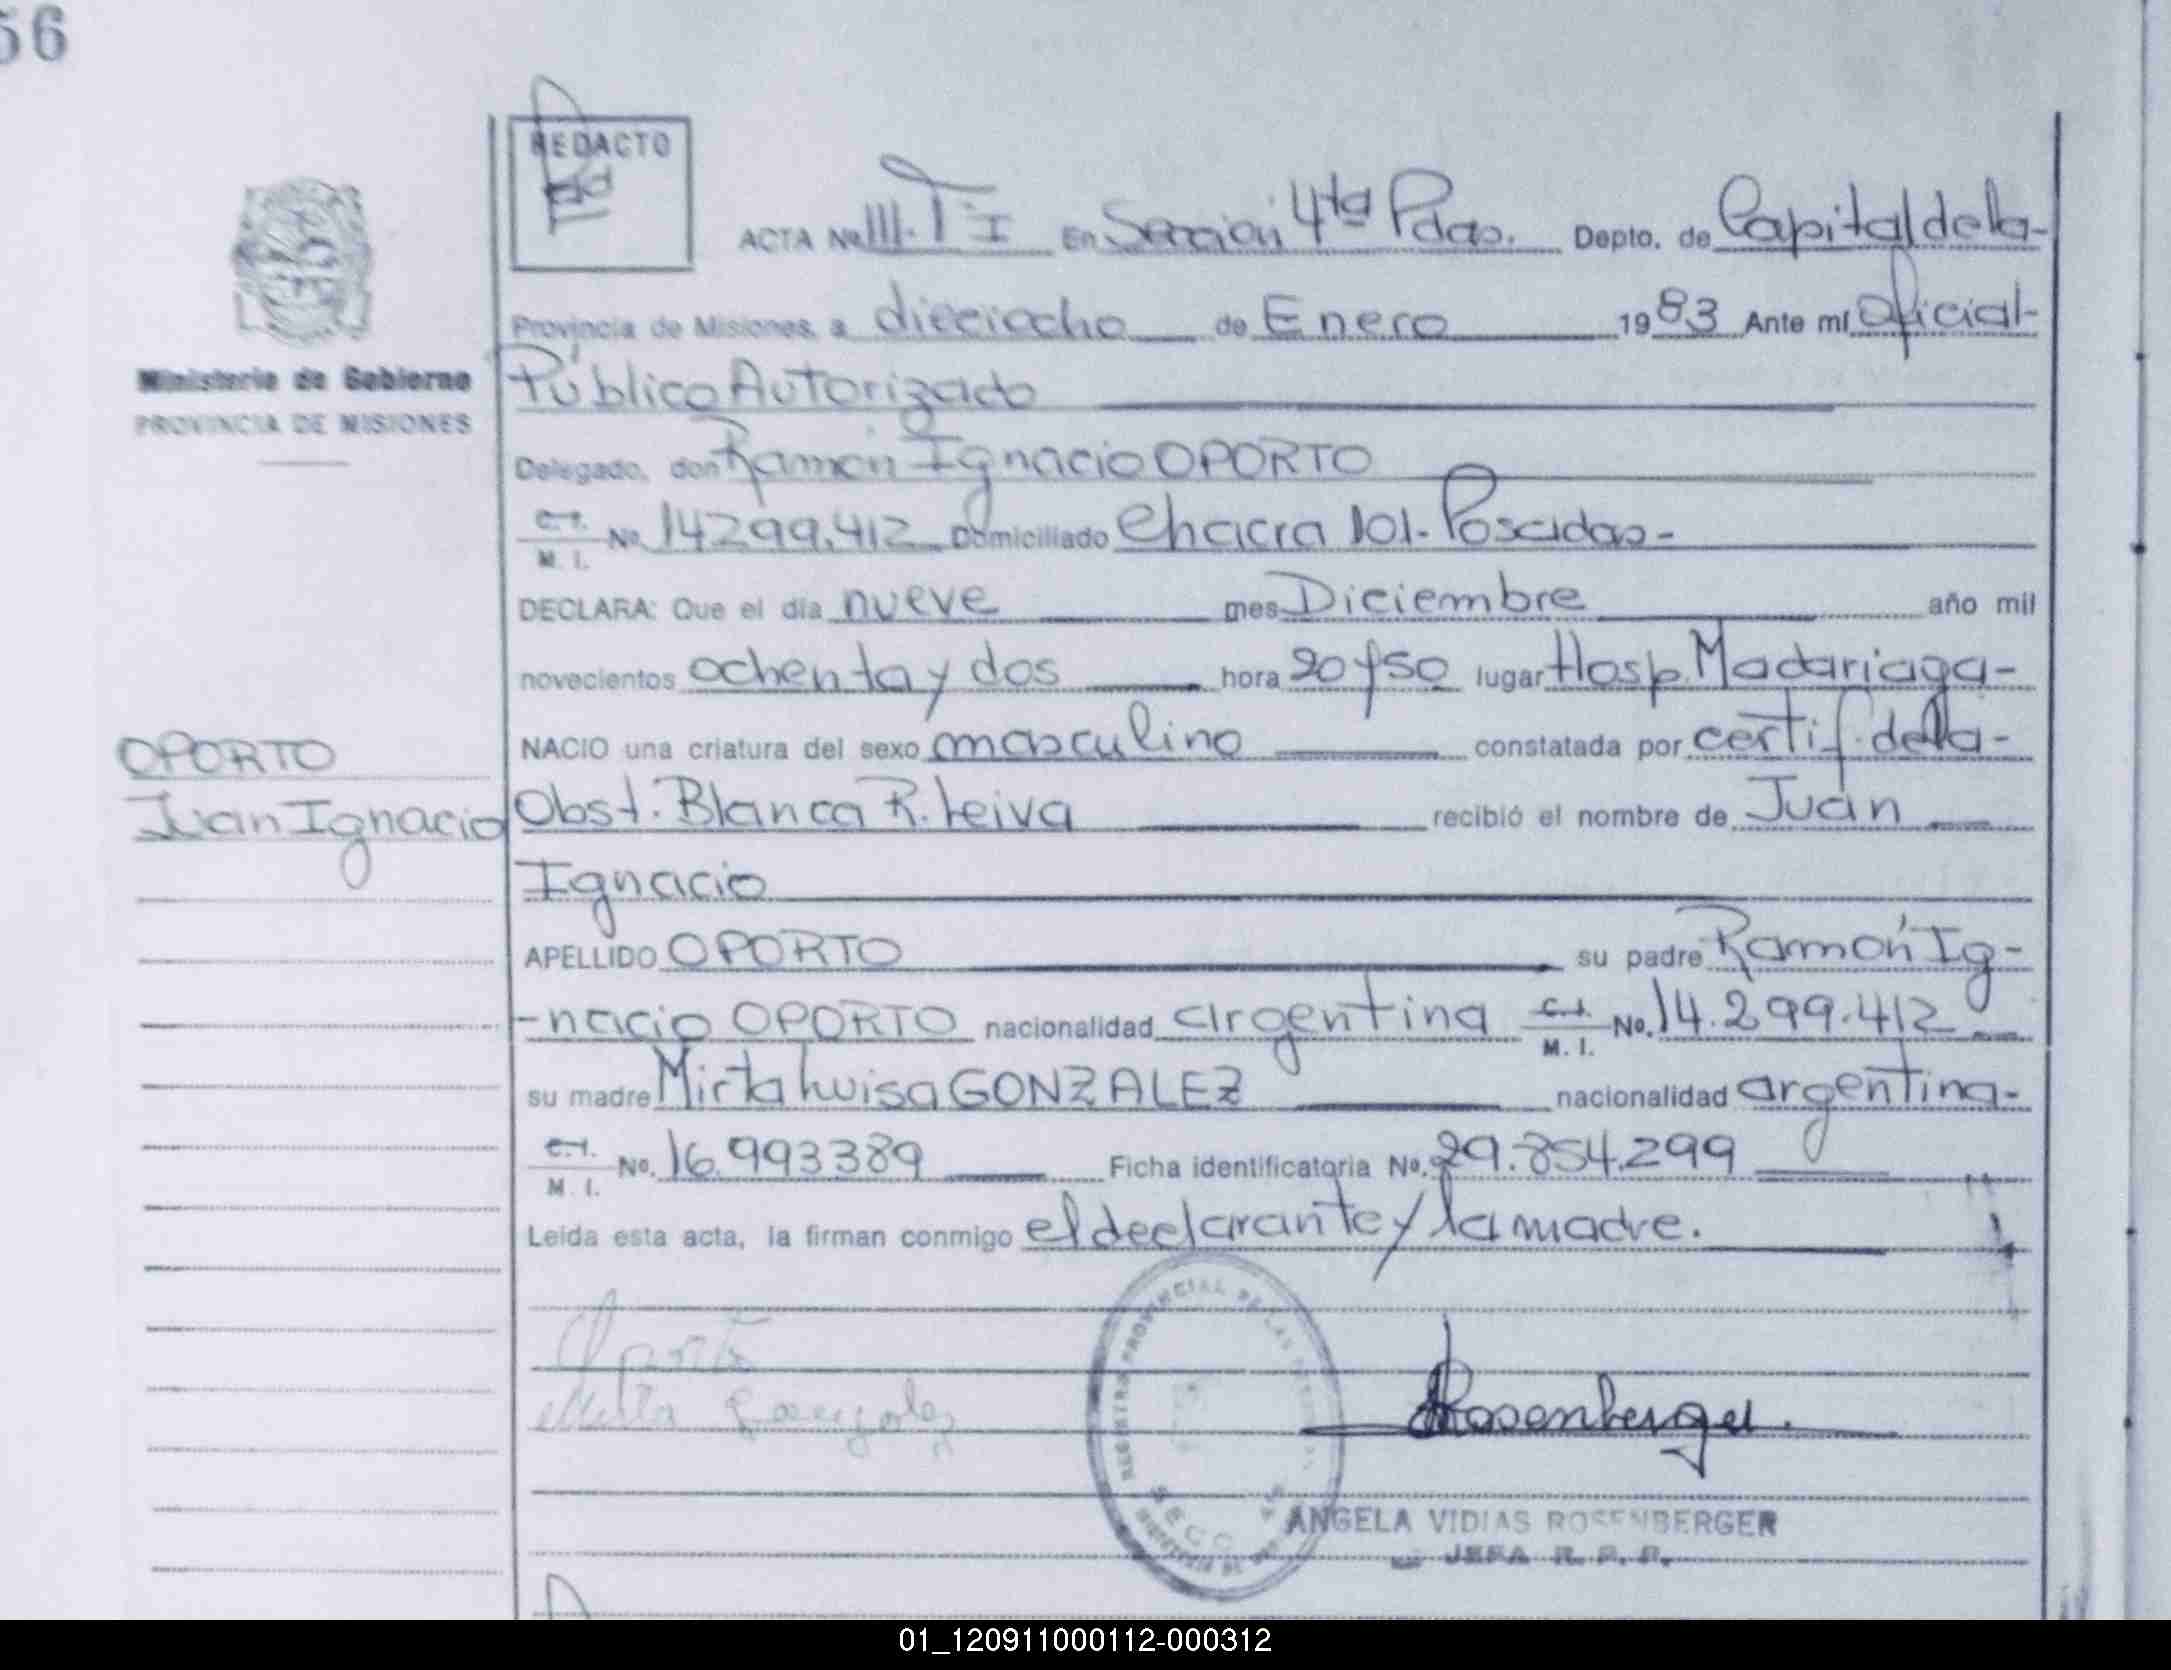 56
REDACTO
ACTA No III. T I En Sección 4ta Pdas. Depto. de Capital de la-
Provincia de Misiones, a dieciocho de Enero 1983 Ante mí Oficial-
Ministerio de Gobierno
PROVINCIA DE MISIONES
Público Autorizado
Delegado, don Ramón Ignacio OPORTO
C.I. M. I. No. 14299.412 Domiciliado Chacra 101.- Posadas-
DECLARA: Que el día nueve mes Diciembre año mil
novecientos ochenta y dos hora 20 y 50 lugar Hosp. Madariaga-
NACIO una criatura del sexo masculino constatada por certif. de la-
OPORTO
Juan Ignacio
Obst. Blanca R. Leiva recibió el nombre de Juan
Ignacio
APELLIDO OPORTO su padre Ramón Ig-
-nacio OPORTO nacionalidad argentina C.I. M. I. No. 14.299.412
su madre Mirta Luisa GONZALEZ nacionalidad argentina-
C.I. M. I. No. 16.993389 Ficha identificatoria No. 29.854.299
Leida esta acta, la firman conmigo el declarante y la madre.
Oporto
Mirta Gonzalez
REGISTRO PROVINCIAL DE LAS
Rosenberger
ANGELA VIDIAS ROSENBERGER
JEFA R. P. P.
01_120911000112-000312